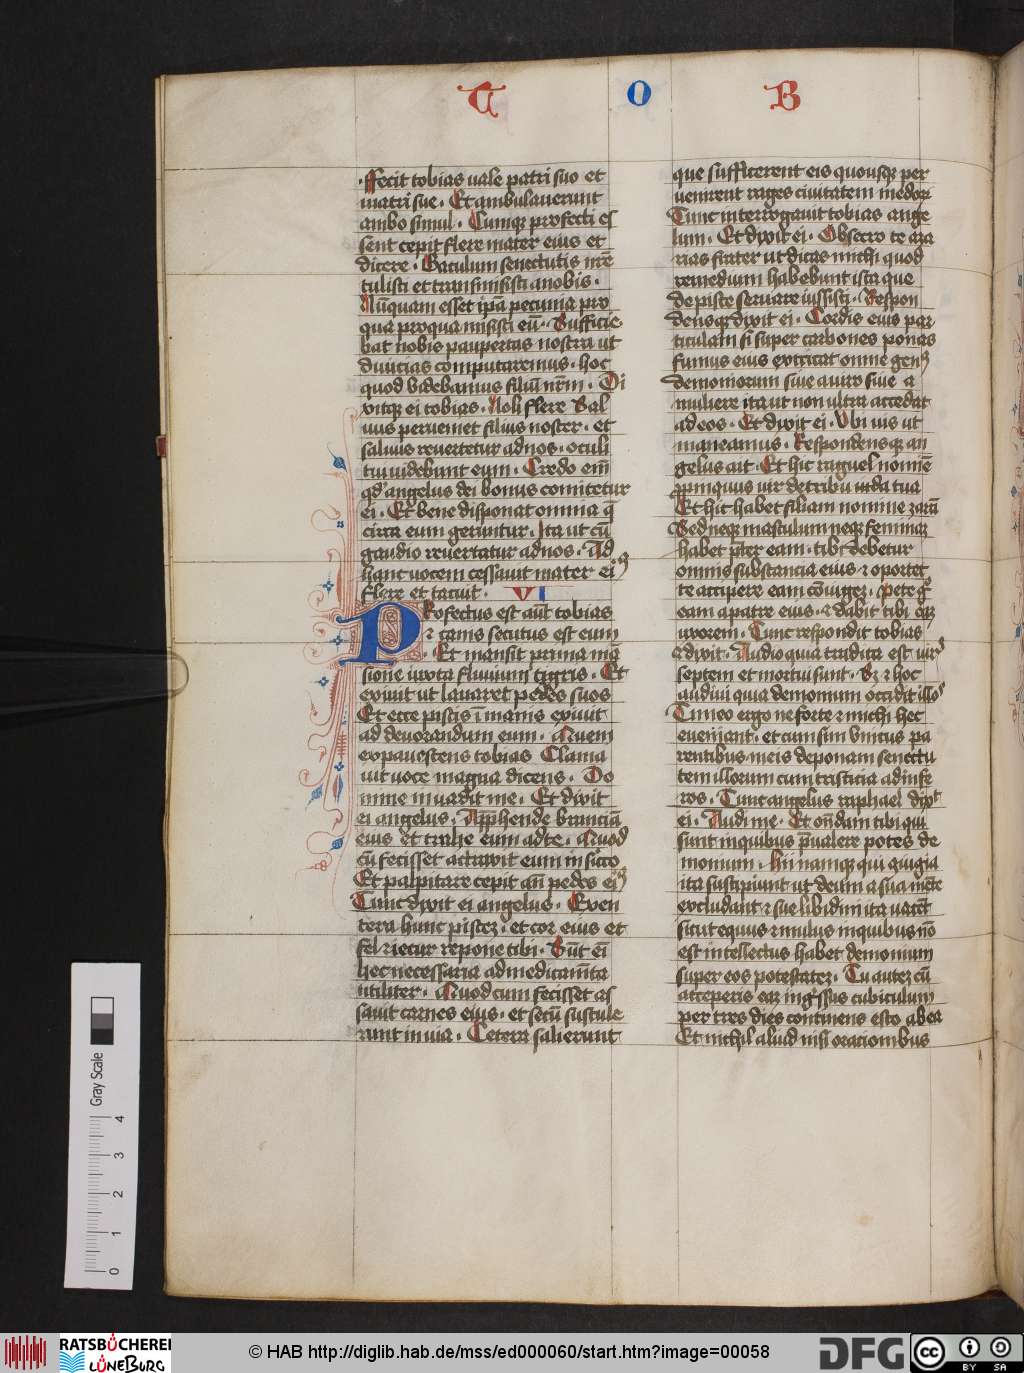 T O B
ffecit tobias uale patri suo et
matri sue. Et ambulauerunt
ambo simul. Cumqȝ profecti es
sent cepit flere mater eius et
dicere. Baculum senectutis nr̄e
tulisti et transmisisti anobis.
Nūquam esset ip̄a pecunia pro
qua proqua misisti eū. Suffitie
bat nobis paupertas nostra ut
diuicias computaremus. hoc
quod videbamus filiū nr̄m. Di
xitqȝ ei tobias. Noli flere Sal
uus perueniet filius noster. et
saluus reuertetur adnos. oculi
tui uidebunt eum. Credo em̄
qd' angelus dei bonus comitetur
ei. Et bene disponat omnia q̄
circa eum geruntur. Ita ut cū
gaudio reuertatur adnos. Ad
hanc uocem cessauit mater eiꝰ
flere et tacuit. VI
PRofectus est aūt tobias
⁊ canis secutus est eum
. Et mansit prima mā
sione iuxta fluuium tigris. Et
exiuit ut lauaret pedes suos
Et ecce piscis īmanis exiuit
ad deuorandum eum. Quem
expauescens tobias Clama
uit uoce magna dicens. Do
mine inuadit me. Et dixit
ei angelus. App̄hende branciā
eius et trahe eum adte. Quod
cū fecisset actraxit eum in sicco
Et palpitare cepit an̄ pedes eiꝰ
Tunc dixit ei angelus. Exen
tera hunc pisceȝ. et cor eius et
fel ⁊ iecur repone tibi. Sūt ei
hec necessaria admedicam̄ta
utiliter. Quod cum fecisset as
sauit carnes eius. et secū sustule
runt in uia. Cetera salierunt
que sufficerent eis quousqȝ per
uenirent rages ciuitatem medoꝝ
Tunc interrogauit tobias ange
lum. Et dixit ei. Obsecro te aza
rias frater ut dicas michi quod
remedium habebunt ista que
de pisce seruare iussisti. Respon
densqȝ dixit ei. Cordis eius par
ticulam si super carbones ponas
fumus eius extricat omne genꝰ
demoniorum siue auiro siue a
muliere ita ut non ultra accedat
ad eos. Et dixit ei. Vbi uis ut
maneamus. Respondensqȝ an
gelus ait. Et hic raguel nomīe
ꝓpinquus uir de tribu tua
Et hic habet filiam nomine zarā
Sed neqȝ masculum neqȝ feminaȝ
habet p̄ter eam. tibi debetur
omnis substancia eius ⁊ oportet
te accipere eam cōiugeȝ. Pete gͦ
eam apatre eius. ⁊ dabit tibi eaȝ
uxorem. Tunc respondit tobias
⁊ dixit. Audio quia tradita est uirꝭ
septem et mortui sunt. Sȝ ⁊ hoc
audiui quia demonium occidit illoꝭ
Timeo ergo ne forte ⁊ michi hec
eueniant. et cum sim vnicus pa
rentibus meis deponam senectu
tem illorum cum tristicia ad infe
ros. Tunc angelus raphael dixͭ
ei. Audi me. Et oñdam tibi qui
sunt in quibus p̄ualere potes de
monium. hii namqȝ qui 9iugia
ita suscipiunt ut deum a sua mēte
excludant ⁊ sue libidini ita uacēt
sicut equus ⁊ mulus inquibus nō
est intellectus habet demonium
super eos potestateȝ. Tu auteȝ cū
acceperis eaȝ ingͥssus cubiculum
per tres dies continens esto abea
Et nichil aliud nisi oracionibus
Gray Scale
0 1 2 3 4
RATSBÜCHEREI
LÜNEBURG
© HAB http://diglib.hab.de/mss/ed000060/start.htm?image=00058
DFG
cc BY SA